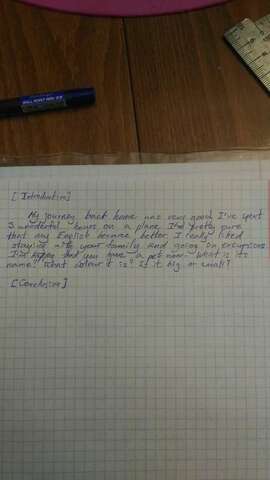 [Introduction]
My journey back home was very good. I've spent
3 wonderful hours on a plane. I'm pretty sure
that my English became better. I really liked
staying with your family and going on excursions.
I'm happy that you have a pet now. What is its
name? What colour it is? Is it big or small?
[Conclusion]